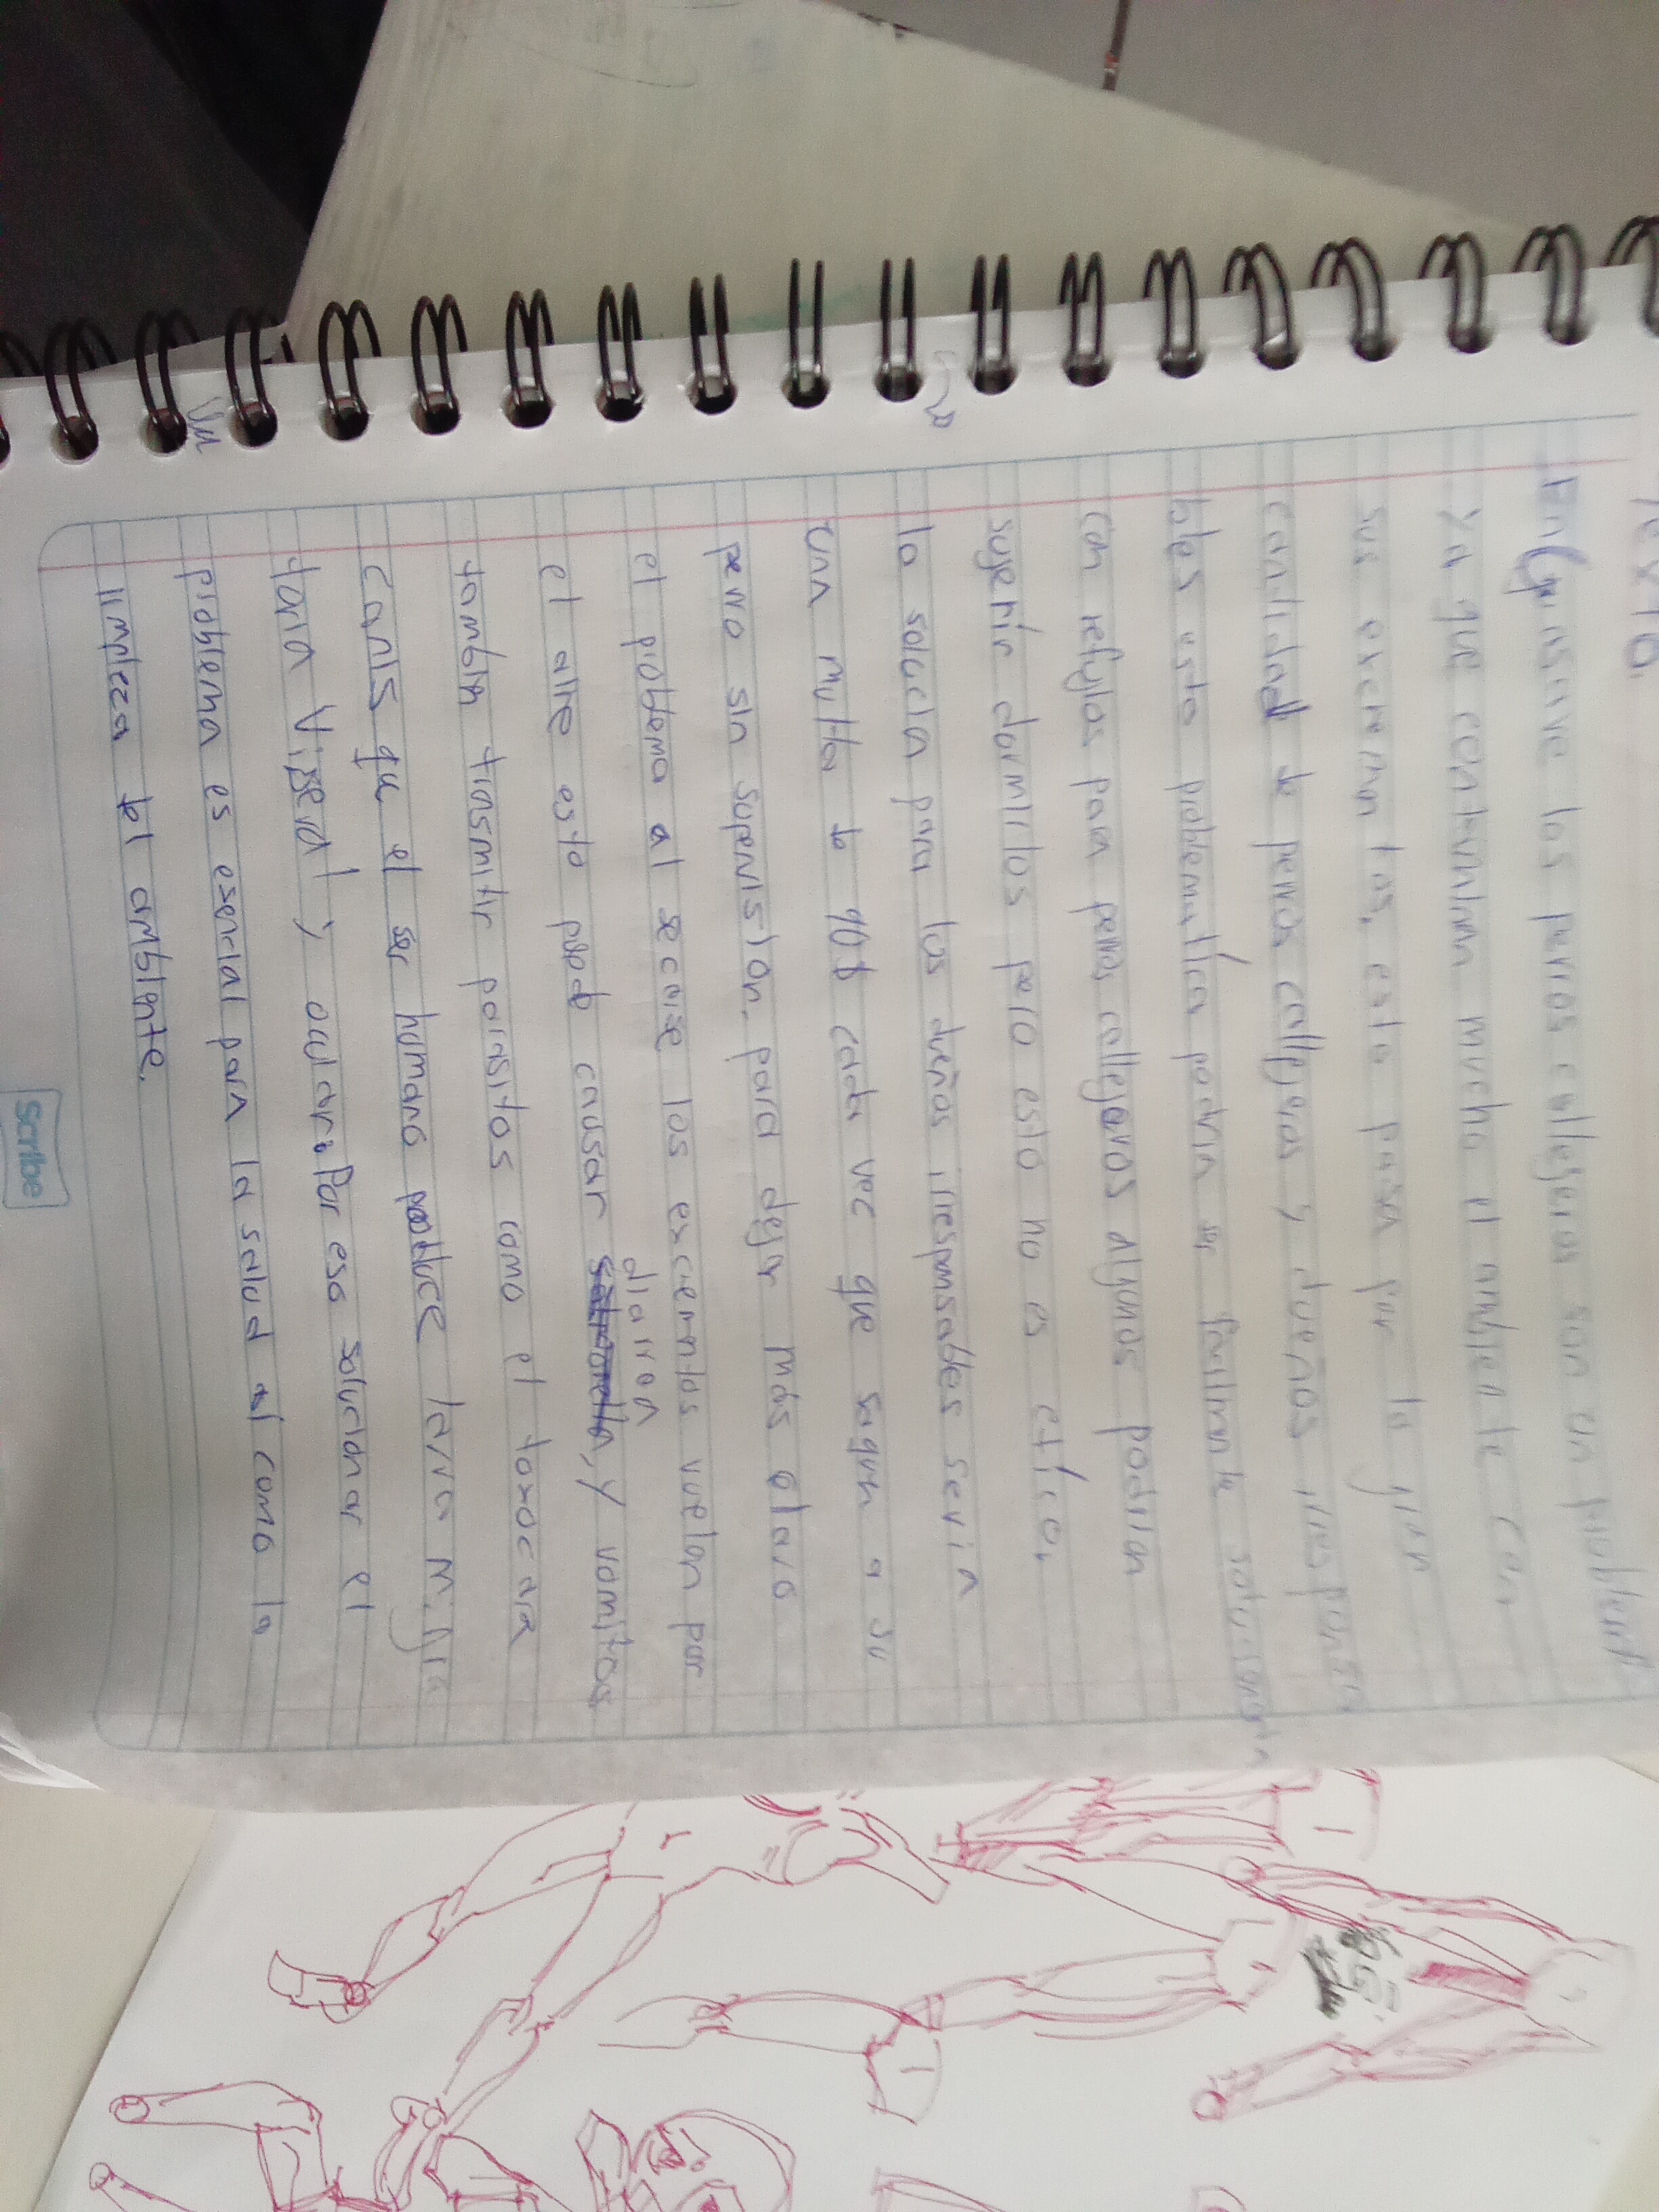 Texto.
inclusive los perros callejeros son un problema
Ya que contaminan mucho el ambiente con
sus excrementos, esto pasa por la gran
cantidad de perros callejeros y dueños irresponsa
bles esta problematica podria ser facilmente solucionaria
con refugios para perros callejeros algunos podrian
sugerir dormirlos pero esto no es etico.
la solucia para los dueños irresponsables seria
una multa de 90$ cada vec que saquen a su
perro sin supervision. para dejar más claro
el problema al secarse los excrementos vuelan por
el aire esto puede causar diarrea, y vomitos
tambin trasmitir parasitos como el toxocara
canis que el ser humano produce larva migra
tara viseral y ocular. Por eso solucionar el
problema es esencial para la salud al como la
limpieza del ambiente.
Scribe